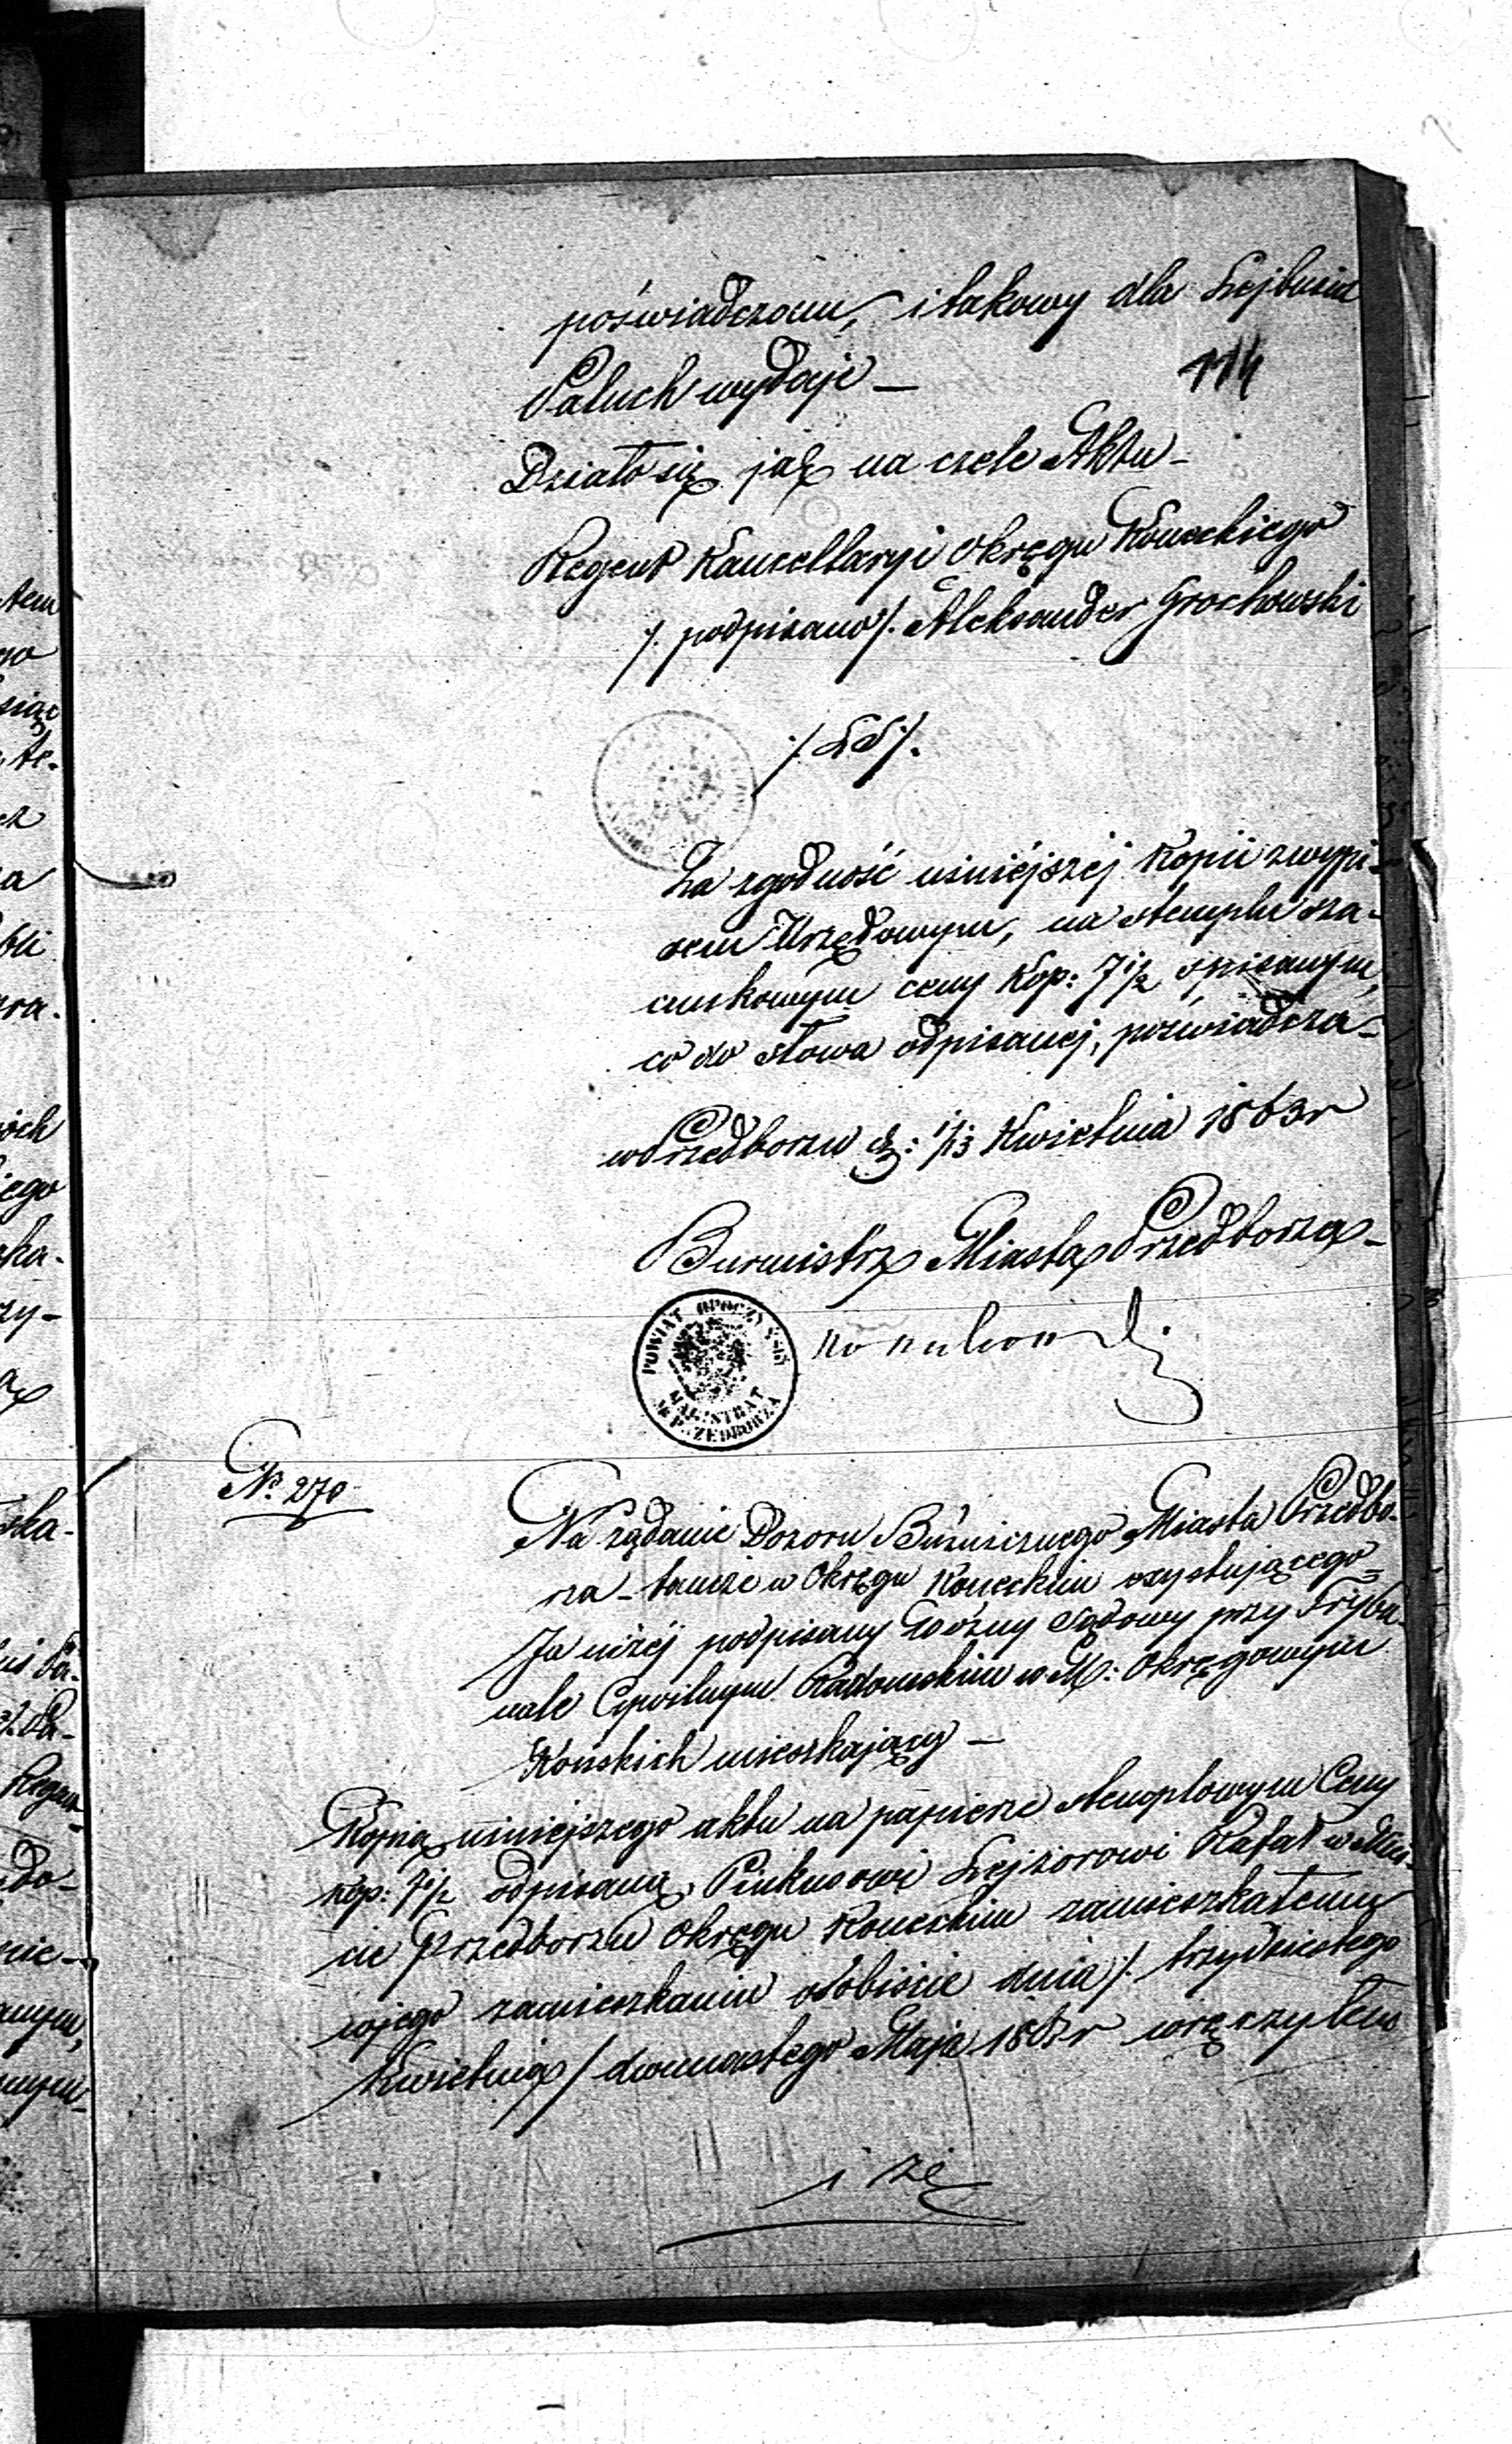 poświadczam, i takowy dla Lejbusia
114
Paluch wydaje —
Działo się jak na czele Aktu —
Regent Kancellaryi Okręgu Koneckiego
/. podpisano /. Aleksander Grochowski
/. LS /.
Za zgodność niniéjszéj Kopii z wypi-
sem Urzędowym, na stemplu sza-
cunkowym ceny Kop: 7½ spisanym,
co do słowa odpisanej, poświadcza —
w Przedborzu d: 1/13 Kwietnia 1863r
Burmistrz Miasta Przedborza —
POWIAT OPOCZYŃSKI
MAGISTRAT
M. PRZEDBORZA
№ 270
Na żądanie Dozoru Bużnicznego Miasta Przedbo-
rza — tamże w Okręgu Koneckim exystującego —
Ja niżéj podpisany Woźny Sądowy przy Trybu-
nale Cywilnym Radomskim w M: Okręgowym
Końskich mieszkający —
Kopią niniejszego aktu na papierze stemplowym Ceny
kop: 7½ odpisaną, Pinkusowi Lejzorowi Rafał w Mie-
cie Przedborzu Okręgu Koneckim zamieszkałemu
w jego zamieszkaniu osobiście dnia /. trzydziestego
Kwietnia / dwunastego Maja 1863r wręczyłem
i że